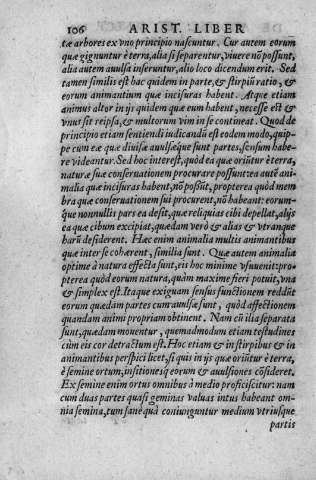 106 ARIST. LIBER
tæ arbores ex vno principio nascuntur. Cur autem eorum
quæ gignuntur è terra, alia si separentur, viuere nō possunt,
alia autem auulsa inseruntur, alio loco dicendum erit. Sed
tamen similis est hac quidem in parte, & stirpiū ratio, &
eorum animantium quæ incisuras habent. Atque etiam
animus altor in ijs quidem quæ eum habent, necesse est &
vnus sit reipsa, & multorum vim in se contineat. Quod de
principio etiam sentiendi iudicandū est eodem modo, quip-
pe cum eæ quæ diuisæ auulsæque sunt partes, sensum habe-
re videantur. Sed hoc interest, quòd ea quæ oriūtur è terra,
naturæ suæ conseruationem procurare possunt: ea autē ani-
malia quæ incisuras habent, nō possūt, propterea quòd mem
bra quæ conseruationem sui procurent, nō habeant: eorum-
que nonnullis pars ea desit, quæ reliquias cibi depellat, alijs
ea quæ cibum excipiat, quædam verò & alias & vtranque
harū desiderent. Hæc enim animalia multis animantibus
quæ inter se cohærent, similia sunt. Quæ autem animalia
optimè à natura effecta sunt, eis hoc minimè vsuuenit: pro-
pterea quòd eorum natura, quàm maximè fieri potuit, vna
& simplex est. Itaque exiguam sensus functionem reddūt
eorum quædam partes cum auulsæ sunt, quòd affectionem
quandam animi propriam obtinent. Nam cū illa separata
sunt, quædam mouentur, quemadmodum etiam testudines
cùm eis cor detractum est. Hoc etiam & in stirpibus & in
animantibus perspici licet, si quis in ijs quæ oriūtur è terra,
è semine ortum, insitionesq́; eorum & auulsiones cōsideret.
Ex semine enim ortus omnibus à medio proficiscitur: nam
cum duas partes quasi geminas valuas intus habeant om-
nia semina, tum sanè quà coniunguntur medium vtriusque
partis